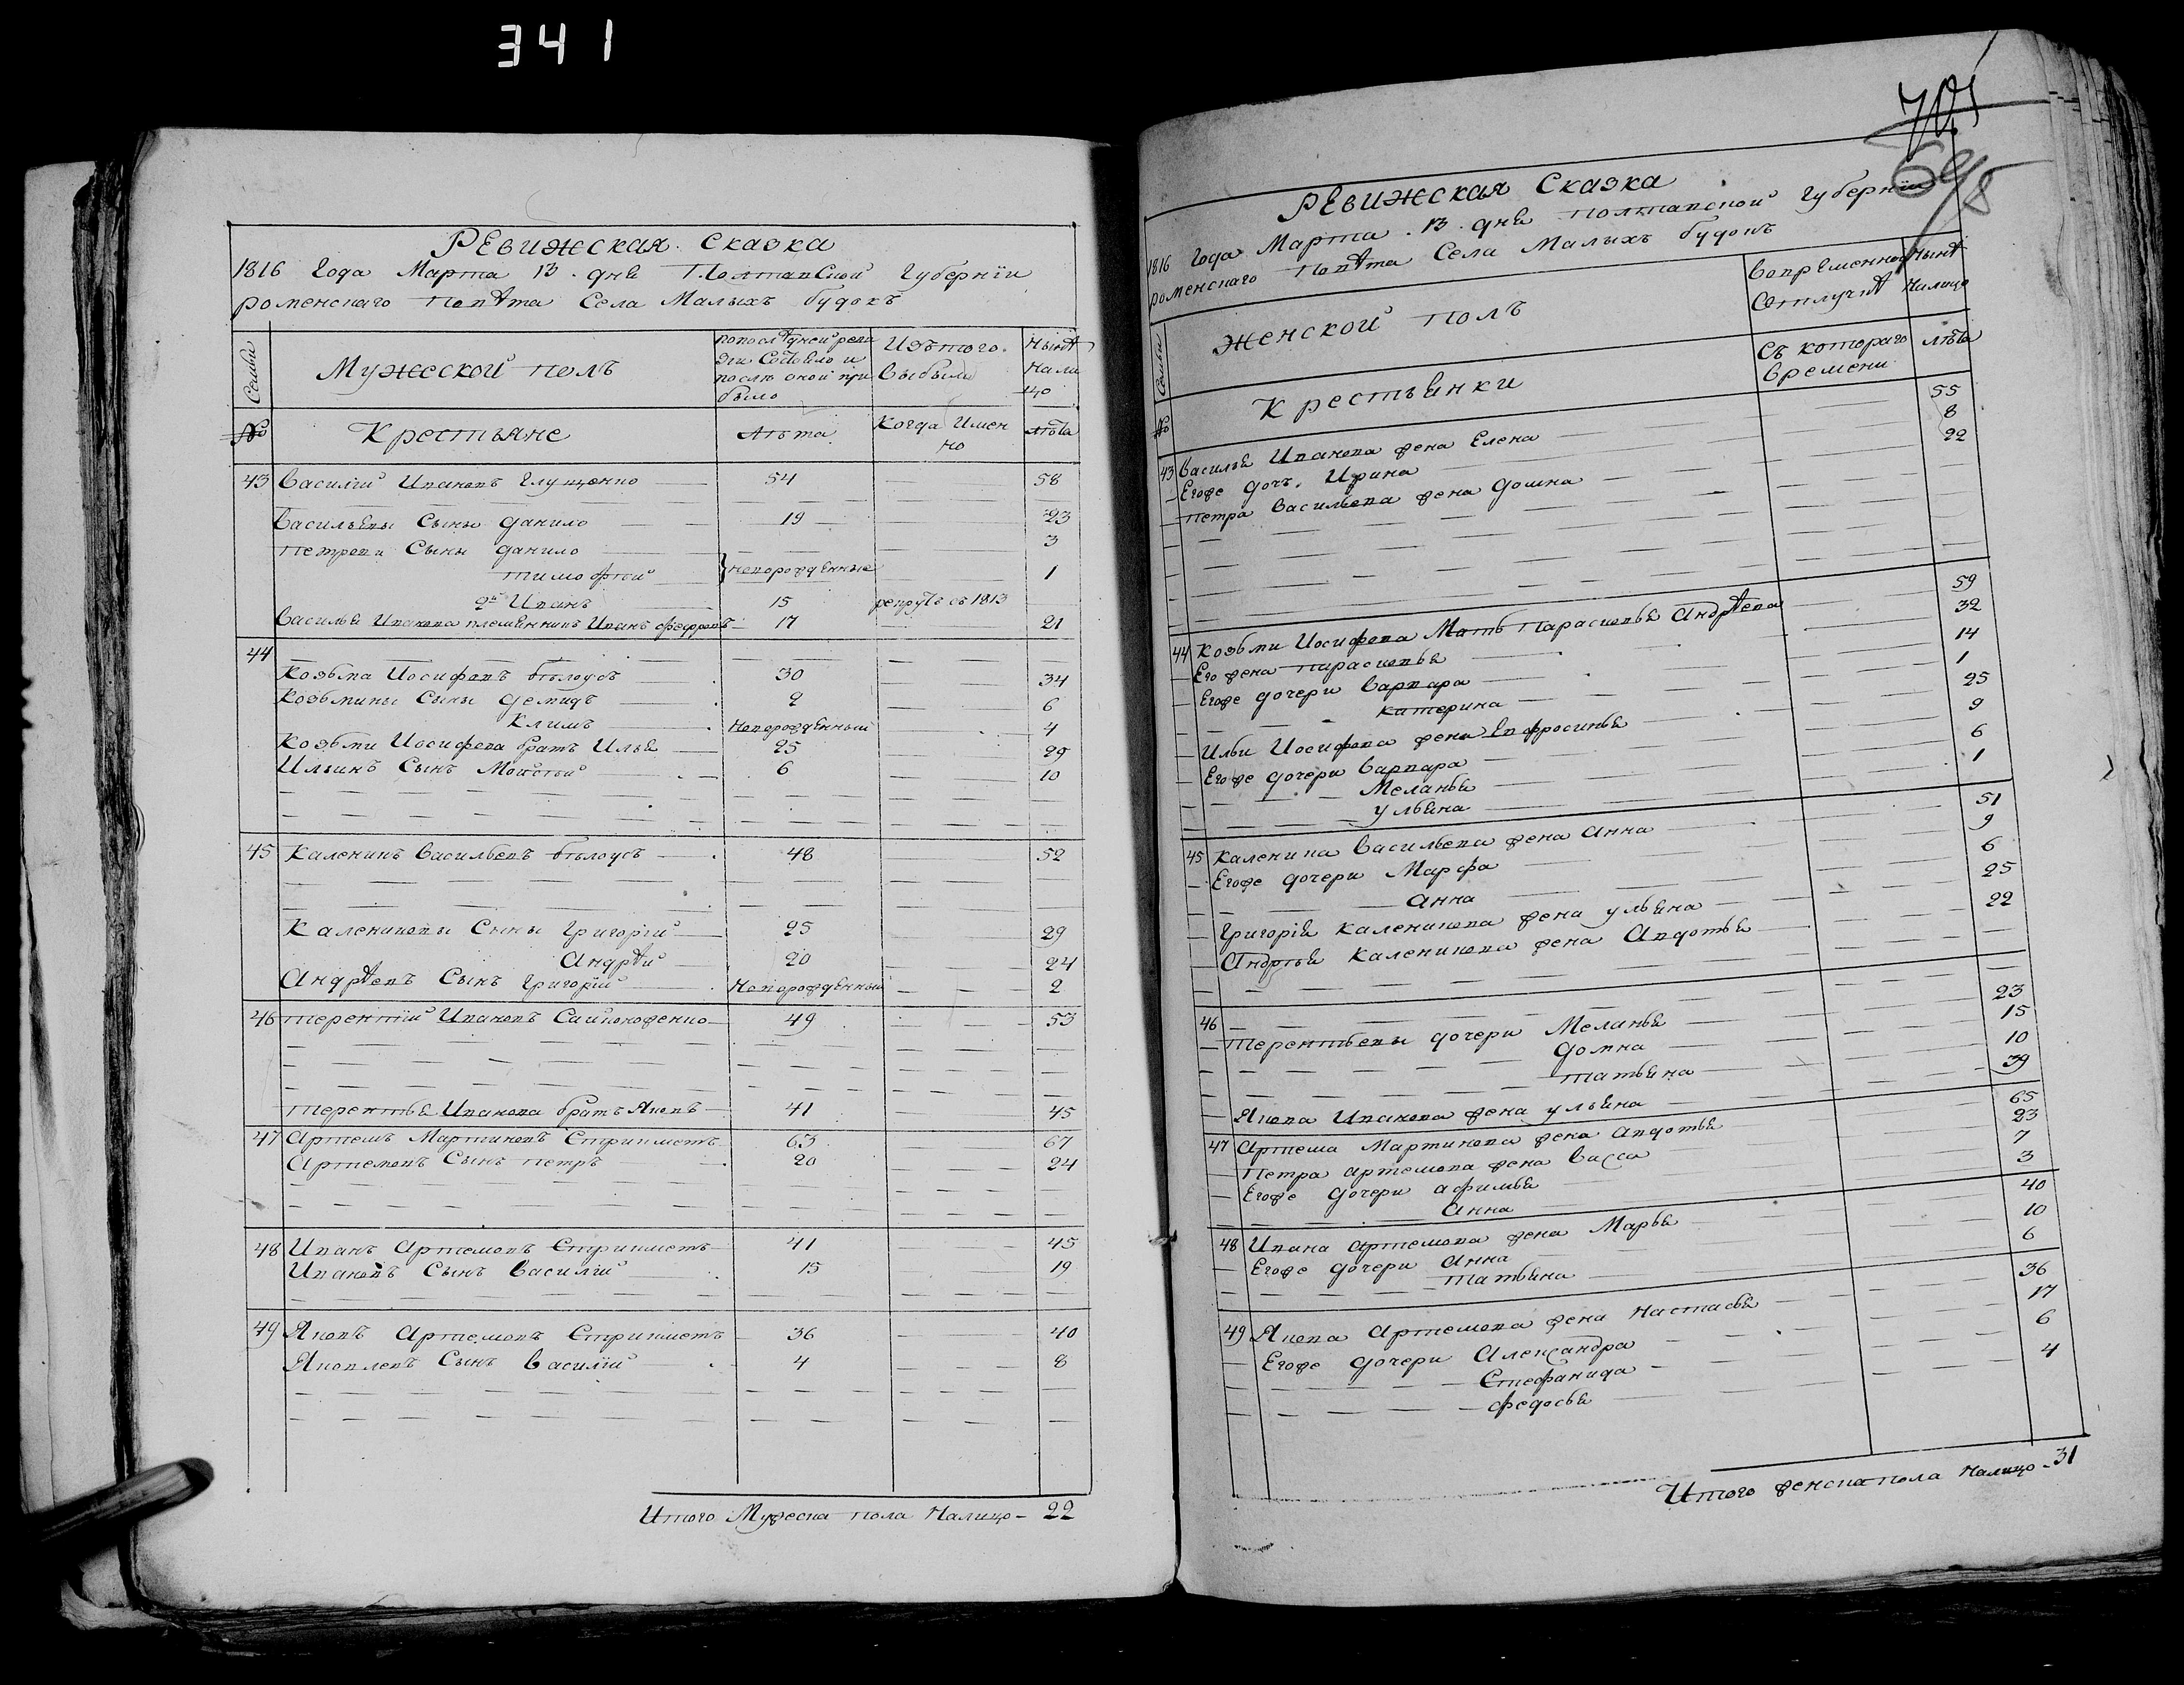 341
Ревижская Сказка
1816 Года Марта 13 дня Полтавской Губернїи
роменскаго повѣта Села Малыхъ будокъ
Семьи
Мужеской полъ
попослѣдней реви
зїи Состояло и
послѣ оной при
было
Изътого
выбыло
Нынѣ
Нали
цо
№
Крестьяне
лѣта
Когда Имен
но
лѣта
43 Василїй Ивановъ Глущенко 54 58
Васильевы Сыны Данило 19 23
Петровы Сыны Данило 3
Тимофѣй новорожденные 1
2й Иванъ 15 рекрутъ съ 1813
Василья Иванова племянникъ Иванъ 17 21
44
Козьма Иосифовъ бѣлоусъ 30 34
Козьмины Сыны Демидъ 2 6
Климъ Новорожденный 4
Козьми Иосифова братъ Илья 25 29
Ильинъ Сынъ Моисѣй 6 10
45 Каленикъ Васильевъ бѣлоусъ 48 52
Калениковы Сыны Григорїй 25 29
Андрѣй 20 24
Андрѣевъ Сынъ Григорїй Новорожденный 2
46 Терентїй Ивановъ 49 53
Терентья Иванова братъ Яковъ 41 45
47 Артемъ Мартиновъ Стрикметъ 63 67
Артемовъ Сынъ Петръ 20 24
48 Иванъ Артемовъ Стрикметъ 41 45
Ивановъ Сынъ Василїй 15 19
49 Яковъ Артемовъ Стрикметъ 36 40
Яковлевъ Сынъ Василїй 4 8
Итого Мужеска пола Налицо - 22
701
698
Ревижская Сказка
1816 Года Марта 13 дня Полтавской Губернїи
роменскаго Повѣта Села Малыхъ будокъ
Семьи
Женской полъ
Вовременной
Отлучкѣ
Нынѣ
Налицо
№
Крестьянки
Съ котораго
времени
лѣта
43 Василья Иванова жена Елена 55
Егоже дочь Ирина 8
Петра Васильева жена Домна 22
44 Козьми Иосифова Мать Парасковья Андрѣева 59
Его жена Парасковья 32
Егоже дочери Варвара 14
Катерина 1
Ильи Иосифова жена Евфросинья 25
Егоже дочери Варвара 9
Меланья 6
Ульяна 1
45 Каленика Васильева жена Анна 51
Егоже дочери Марфа 9
Анна 6
Григорїя Каленикова жена Ульяна 25
Андрѣя Каленикова жена Авдотья 22
46
Терентьевы дочери Меланья 23
Домна 15
Татьяна 10
Якова Иванова жена Ульяна 39
47 Артема Мартинова жена Авдотья 65
Петра Артемова жена Васса 23
Егоже дочери Афимья 7
Анна 3
48 Ивана Артемова жена Марья 40
Егоже дочери Анна 10
Татьяна 6
49 Якова Артемова жена Настасья 36
Егоже дочери Александра 17
Стефанида 6
Федосья 4
Итого женска пола Налицо - 31